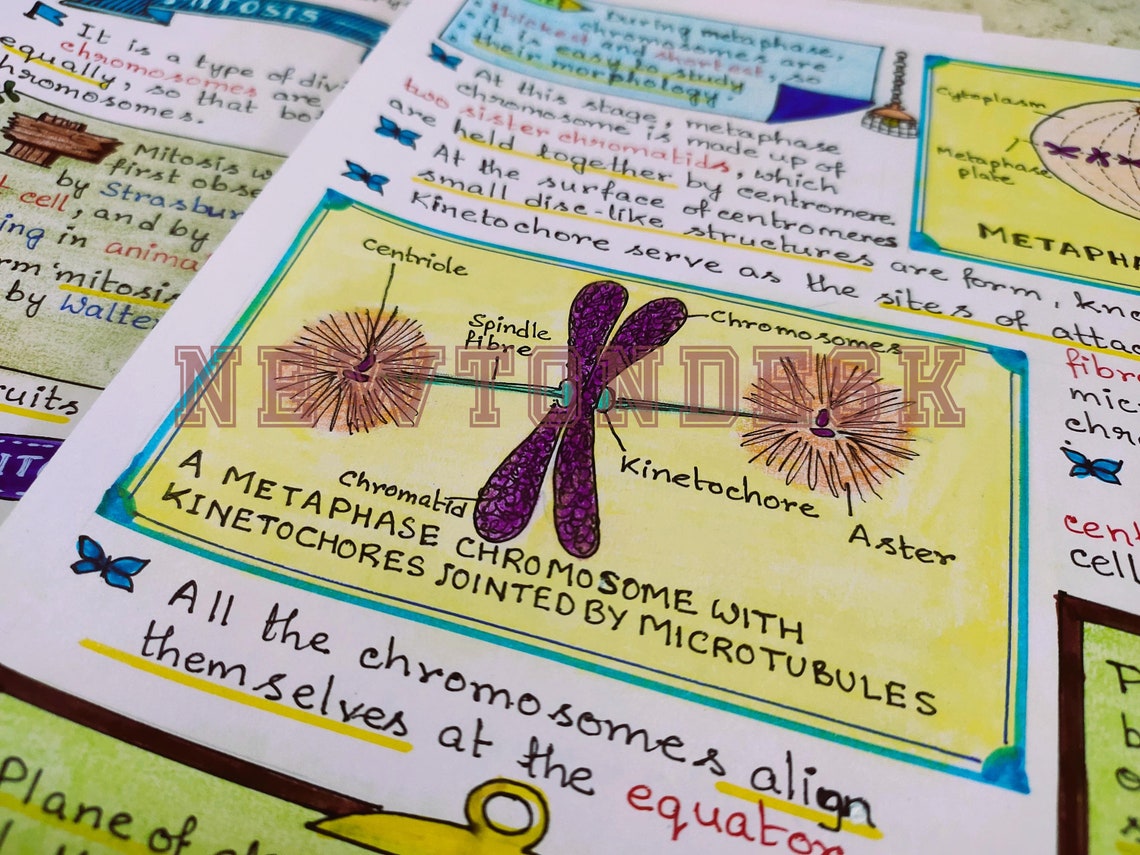 It is a type of
chromosomes are
equally, so that
chromosomes.
Mitosis
first
by
cell, and by
in
by
During metaphase,
chromosomes are,
thicked and shortest, so
it is easy to study
their morphology.
At this stage, metaphase
chromosome is made up of
two sister chromatids, which
are held together by centromere
At the surface of centromeres
small disc-like structures are form,
Kinetochore serve as the sites of
Cytoplasm
Metaphase
plate
Centriole
Spindle
fibre
Chromosomes
NEWTONDESK
Chromatid
Kinetochore
Aster
A METAPHASE CHROMOSOME WITH
KINETOCHORES JOINTED BY MICROTUBULES
All the chromosomes align
themselves at the equator
Plane of